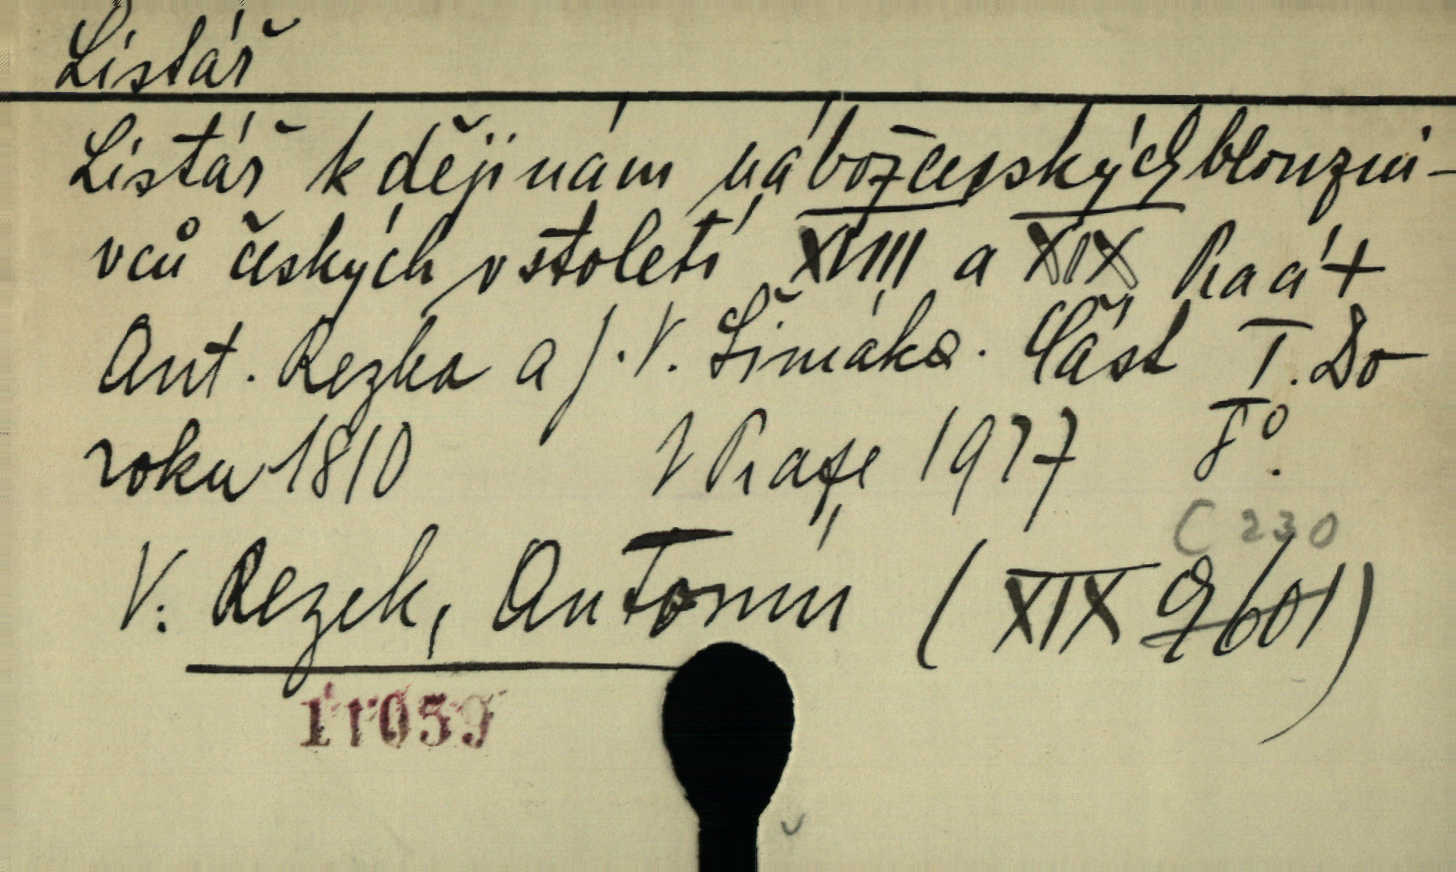 Listář
Listář k dějinám náboženských blouzni-
vců českých v století XVIII a XIX
Ant. Rezka a J. V. Šimáka. Část I. Do
roku 1810 V Praze 1927 8°.
C 230
V. Rezek, Antonín (XIX
11059